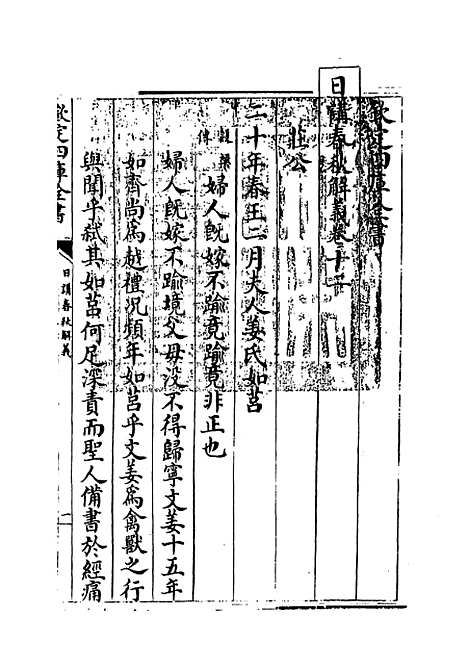 欽定四庫全書
日講春秋解義卷十一
莊公
二十年春王二月夫人姜氏如莒
穀梁傳婦人既嫁不踰竟踰竟非正也
婦人既嫁不踰境父母沒不得歸寧文姜十五年
如齊尚為越禮況頻年如莒乎文姜為禽獸之行
與聞乎弒其如莒何足深責而聖人備書於經痛
欽定四庫全書
日講春秋解義
一